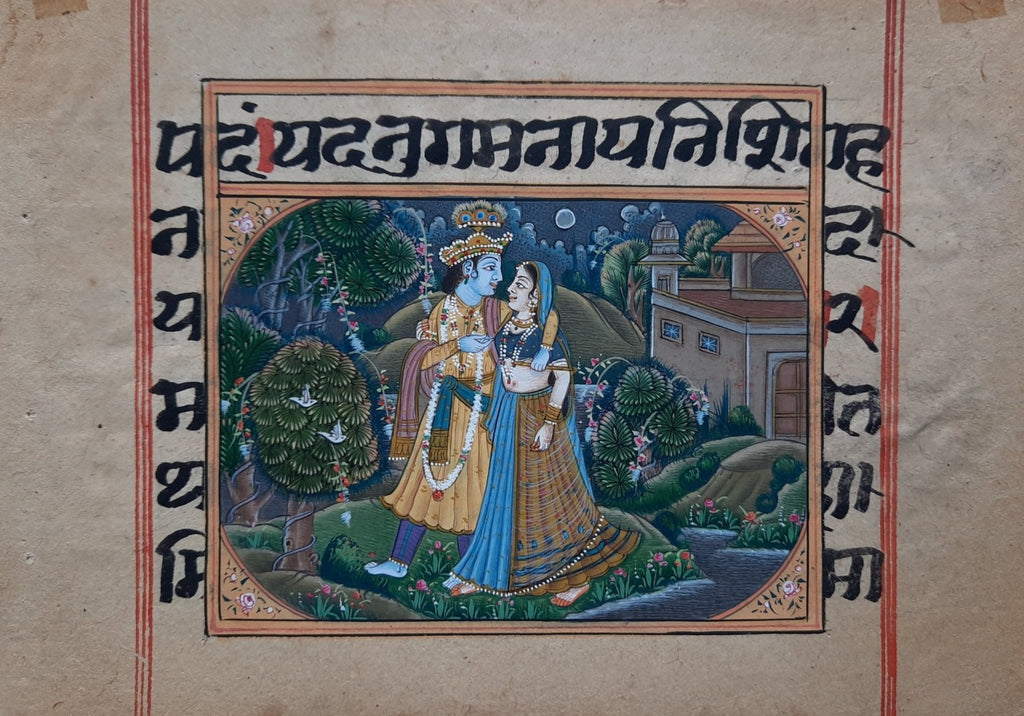 पदं।यदनुगमनायनिशिगह
न
य २
म त
थ
मि मा